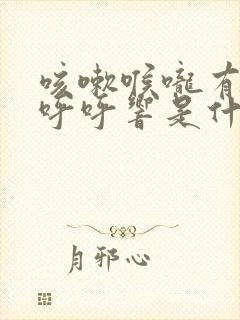 咳嗽喉咙有
呼呼响是什
月邪心